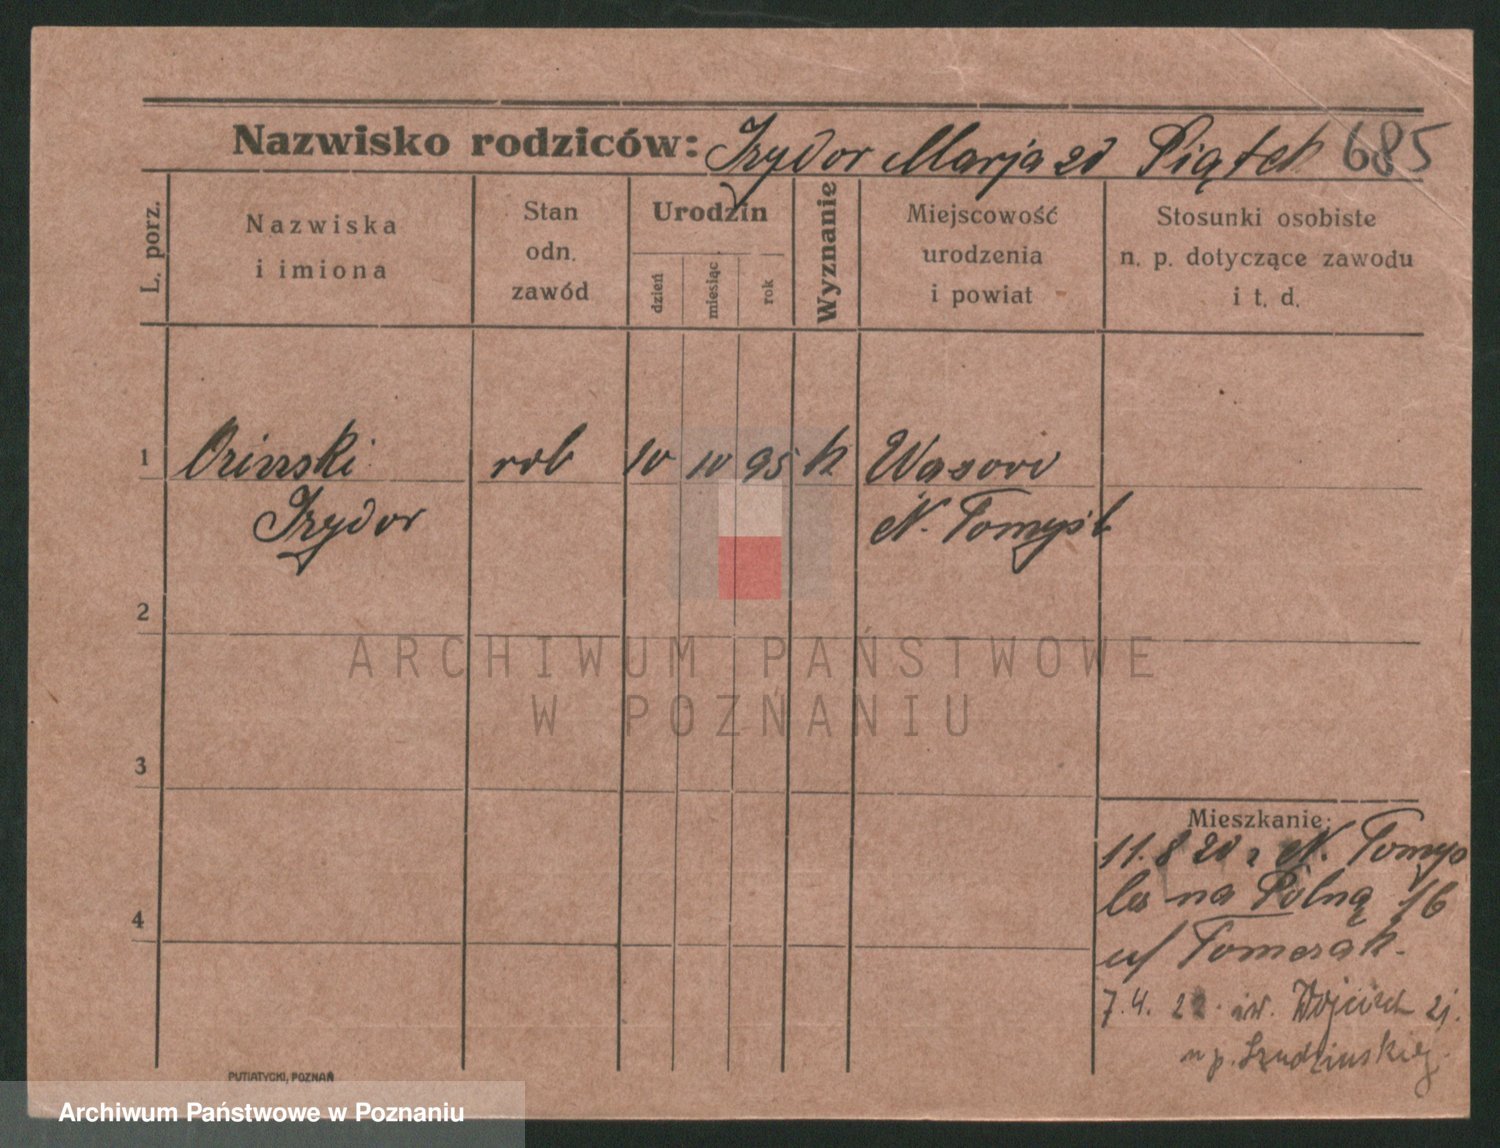 Nazwisko rodziców: Izydor Marja zd Piątek 685
L. porz.
Nazwiska i imiona
Stan odn. zawód
Urodzin
dzień
miesiąc
rok
Wyznanie
Miejscowość urodzenia i powiat
Stosunki osobiste n. p. dotyczące zawodu i t. d.
1 rob 10 10 95 k Wasowo
Izydor N. Tomyśl
2
3
4
Mieszkanie:
11.8 20 z N. Tomyś
la na Polną 16
u/ Tomczak.
7.4. 22. św. Wojciech 21.
u p. Szudzińskiej.
PUTIATYCKI, POZNAŃ
ARCHIWUM PAŃSTWOWE
W POZNANIU
Archiwum Państwowe w Poznaniu